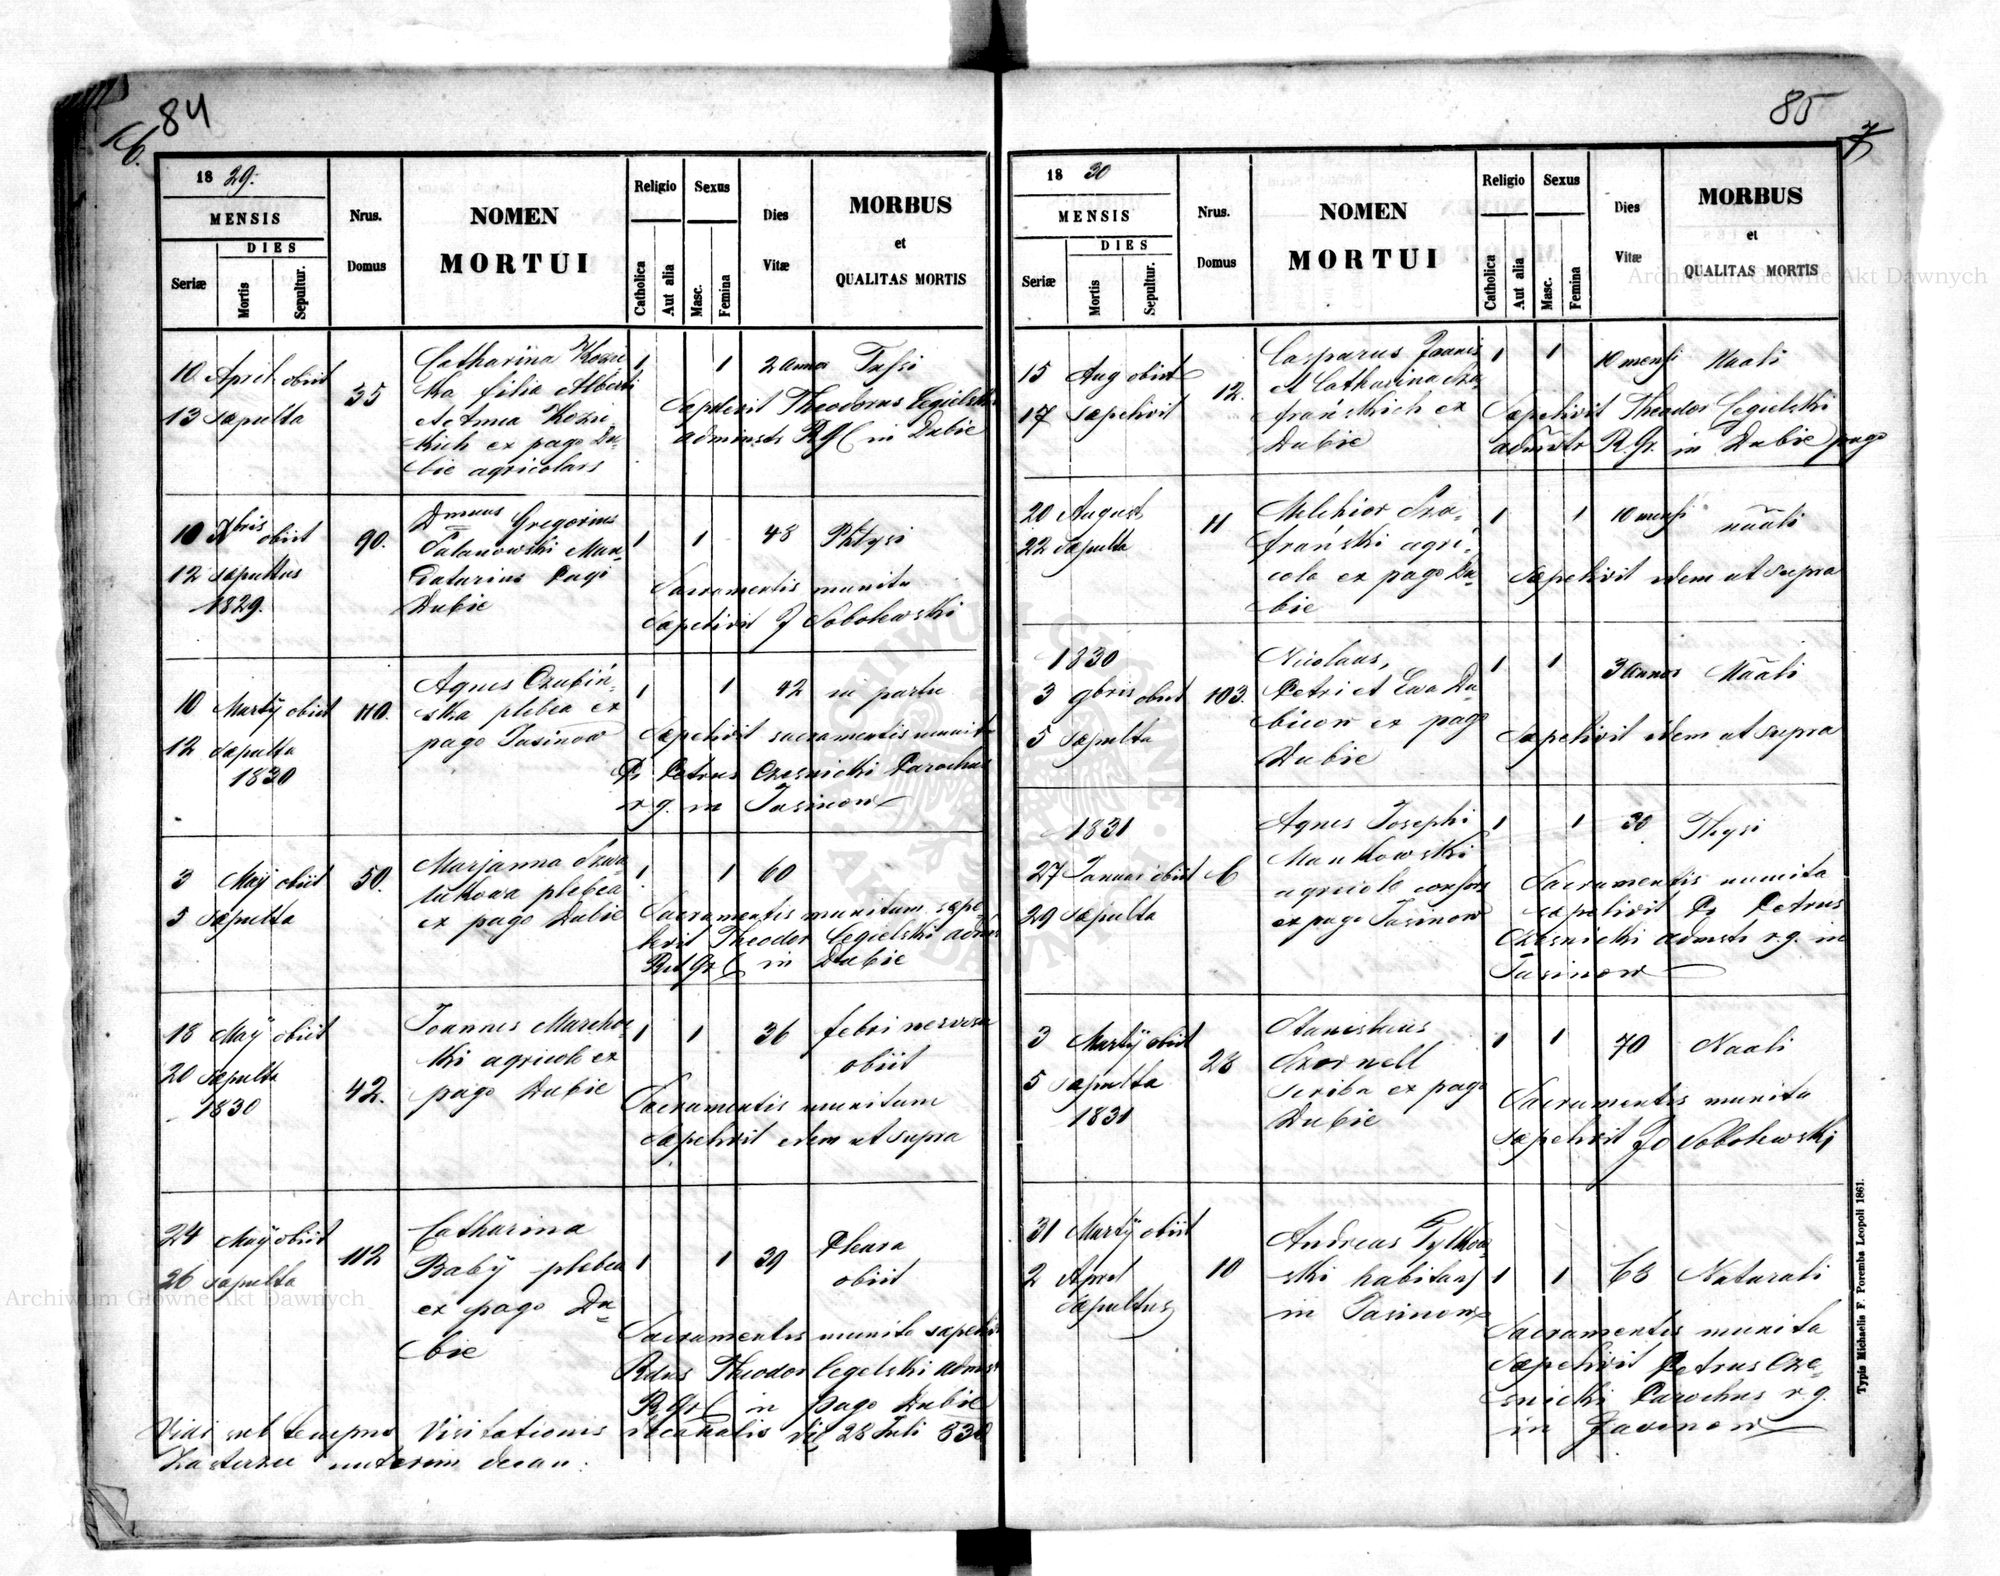 84
16.
18 29.
MENSIS
DIES
Seriæ
Mortis
Sepultur.
Nrus.
Domus
NOMEN
MORTUI
Religio
Catholica
Aut alia
Sexus
Masc.
Femina
Dies
Vitæ
MORBUS
et
QUALITAS MORTIS
10 April obiit
13 sepulta
35
Catharina
filia Alberti
et Anna
ex pago Du-
bie agricolars
1 1 2 annor Tussi
Sepelivit Theodorus Cegielski
adminstr R G C in Dubie
10 Xbris obiit
12 sepultus
1829.
90.
Dmnus Gregorius
Man-
datarius Pagi
Dubie
1 1 48 Phtysi
Sacramentis munitu
Sepelivit J Sobolewski
10 Martÿ obiit
12 sepulta
1830
110.
Agnes Czubiń-
ska plebea ex
pago Jasinow
1 1 42 in partu
Sepelivit sacramentis munita
Pr Petrus Czesnicki Parochus
r. g. in Jasinow
3 Maÿ obiit
5 sepulta
50.
Marjanna
plebea
ex pago Dubie
1 1 60
Sacramentis munitam sepe-
livit Theodor Cegielski adms
Rit Gr C in Dubie
18 Maÿ obiit
20 sepulta
1830
42.
Joannes
ski agricola ex
pago Dubie
1 1 36 febri nervosa
obiit
Sacramentis munitum
Sepelivit idem ut supra
24 Maÿ obiit
26 sepulta
112
Catharina
Babÿ plebea
ex pago Du-
bie
1 1 39 Pleura
obiit
Sacramentis munita sepelivit
Rdus Theodor Cegelski admst
R Gr C in pago Dubie
Vidi sub tempus Visitationis decanalis die 28 Juli 830
decan:
85
7
18 30
MENSIS
DIES
Seriæ
Mortis
Sepultur.
Nrus.
Domus
NOMEN
MORTUI
Religio
Catholica
Aut alia
Sexus
Masc.
Femina
Dies
Vitæ
MORBUS
et
QUALITAS MORTIS
15 Aug obiit
17 sepelivit
12.
Casparus Joanis
et Catharina Sza-
frańskich ex
Dubie
1 1 10 mensi Naali
Sepelivit Theodor Cegielski
admstr R. Gr. in Dubie pago
20 August
22 sepulta
11
Melchior Sza-
frański agri-
cola ex pago Du-
bie
1 1 10 mensi nãali
Sepelivit idem ut supra
1830
3 9bris obiit
5 sepulta
103.
Nicolaus,
Petri et Ewa Du-
biców ex pago
Dubie
1 1 3 annos Nãali
Sepelivit idem ut supra
1831
27 Januar obiit
29 sepulta
6
Agnes Josephi
Mankowski
agricole consors
ex pago Jasinow
1 1 30 Thysi
Sacramentis munita
sepelivit Pr Petrus
Czesnicki admstr r. g. in
Jasinow
3 Martÿ obiit
5 sepulta
1831
28
Stanislaus
Szornell
scriba ex pago
Dubie
1 1 70 Naali
Sacramentis munita
sepelivit Jo Sobolewski
31 Martÿ obiit
2 April
sepultus
10
Andreas
ski habitans
in Jasinow
1 1 68 Naturali
Sacramentis munita
Sepelivit Petrus Cze-
snicki Parochus r. g.
in Jasinow
Typis Michaelis F. Poremba Leopoli 1861.
Archiwum Główne Akt Dawnych
Archiwum Główne Akt Dawnych
ARCHIWUM GŁÓWNE AKT DAWNYCH